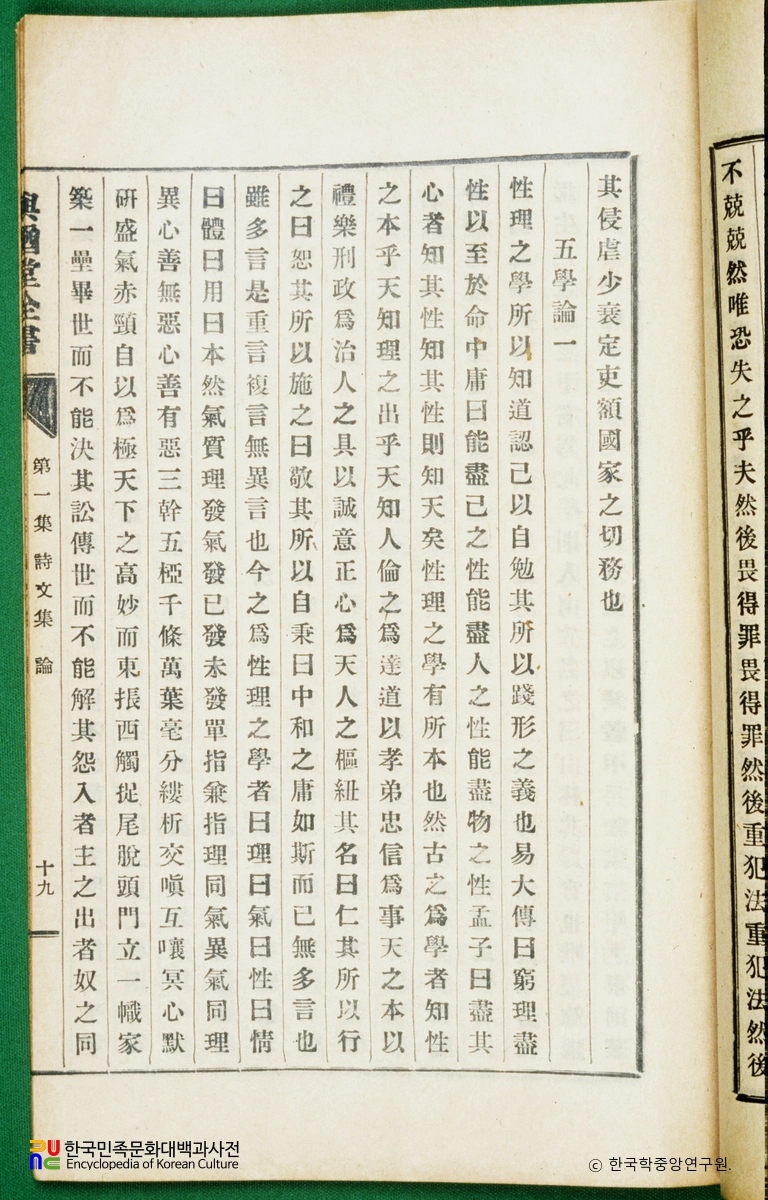 不兢兢然唯恐失之乎夫然後畏得罪畏得罪然後重犯法重犯法然後
其侵虐少衰定吏額國家之切務也
五學論一
性理之學所以知道認己以自勉其所以踐形之義也易大傳曰窮理盡
性以至於命中庸曰能盡己之性能盡人之性能盡物之性孟子曰盡其
心者知其性知其性則知天矣性理之學有所本也然古之爲學者知性
之本乎天知理之出乎天知人倫之爲達道以孝弟忠信爲事天之本以
禮樂刑政爲治人之具以誠意正心爲天人之樞紐其名曰仁其所以行
之曰恕其所以施之曰敬其所以自秉曰中和之庸如斯而已無多言也
雖多言是重言複言無異言也今之爲性理之學者曰理曰氣曰性曰情
曰體曰用曰本然氣質理發氣發已發未發單指兼指理同氣異氣同理
異心善無惡心善有惡三幹五椏千條萬葉毫分縷析交嗔互嚷冥心默
研盛氣赤頸自以爲極天下之高妙而東掁西觸捉尾脫頭門立一幟家
築一壘畢世而不能決其訟傳世而不能解其怨入者主之出者奴之同
與猶堂全書
第一集 詩文集 論
十九
한국민족문화대백과사전
Encyclopedia of Korean Culture
© 한국학중앙연구원.